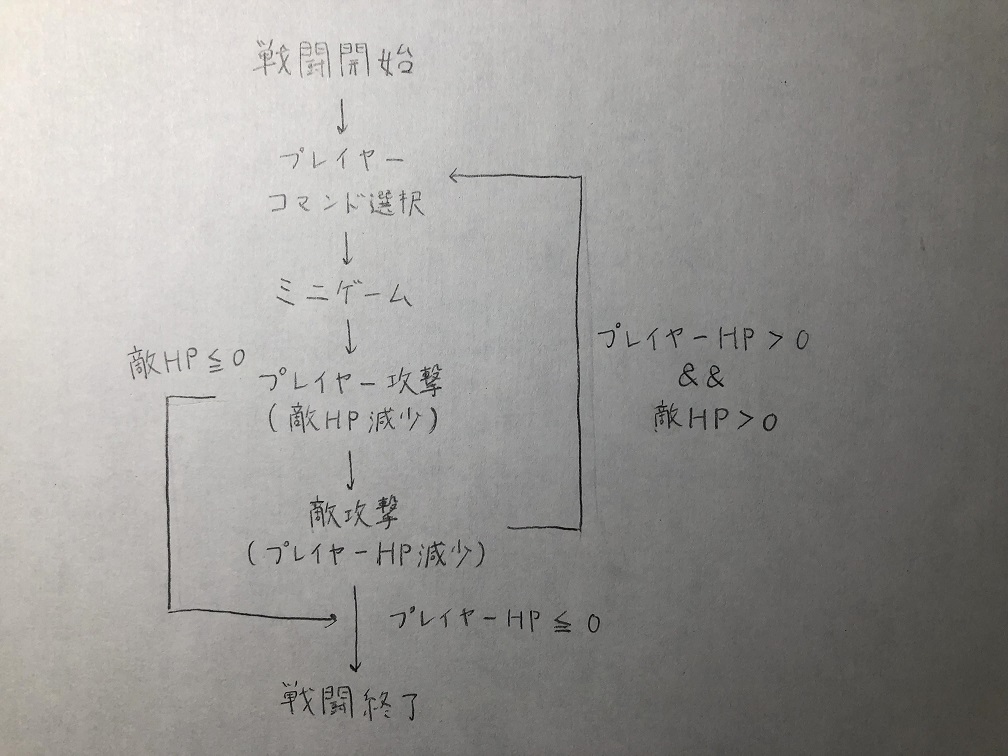 戦闘開始
プレイヤー
コマンド選択
ミニゲーム
敵HP≦0
プレイヤー攻撃
(敵HP減少)
プレイヤーHP>0
&&
敵HP>0
敵攻撃
(プレイヤーHP減少)
プレイヤーHP≦0
戦闘終了